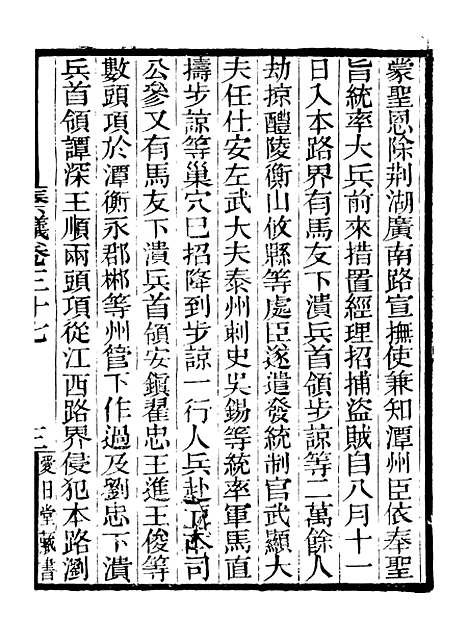 蒙聖恩除荆湖廣南路宣撫使兼知潭州臣依奉聖
旨統率大兵前來措置經理招捕盜賊自八月十一
日入本路界有馬友下潰兵首領步諒等二萬餘人
劫掠醴陵衡山攸縣等處臣遂遣發統制官武顯大
夫任仕安左武大夫泰州刺史吳錫等統率軍馬直
擣步諒等巢穴巳招降到步諒一行人兵赴本司
公參又有馬友下潰兵首領安鎭翟忠王進王俊等
數頭項於潭衡永郡郴等州管下作過及劉忠下潰
兵首領譚深王順兩頭項從江西路界侵犯本路瀏
奏議卷三十七
三
愛日堂藏書